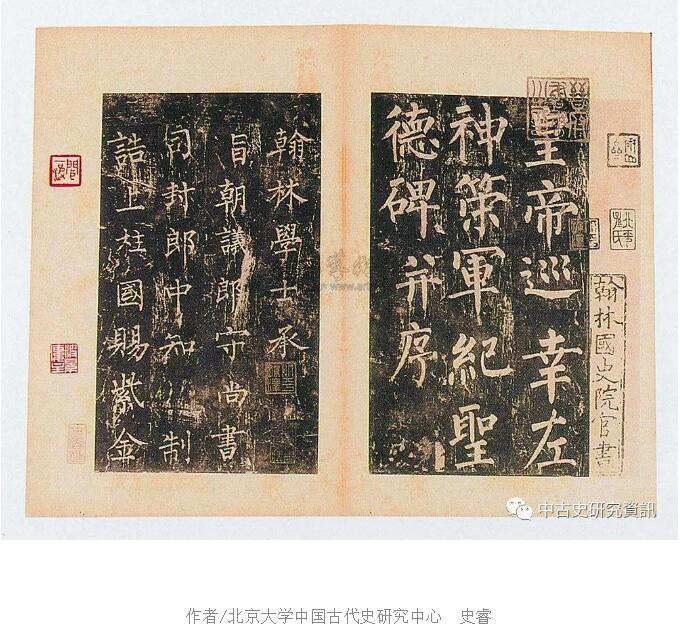 皇帝巡幸左
神策軍紀聖
德碑并序
翰林學士承
旨朝議郎守尚書
司封郎中知制
誥上柱國賜紫金
翰林國史院官書
中古史研究資訊
作者/北京大学中国古代史研究中心 史睿